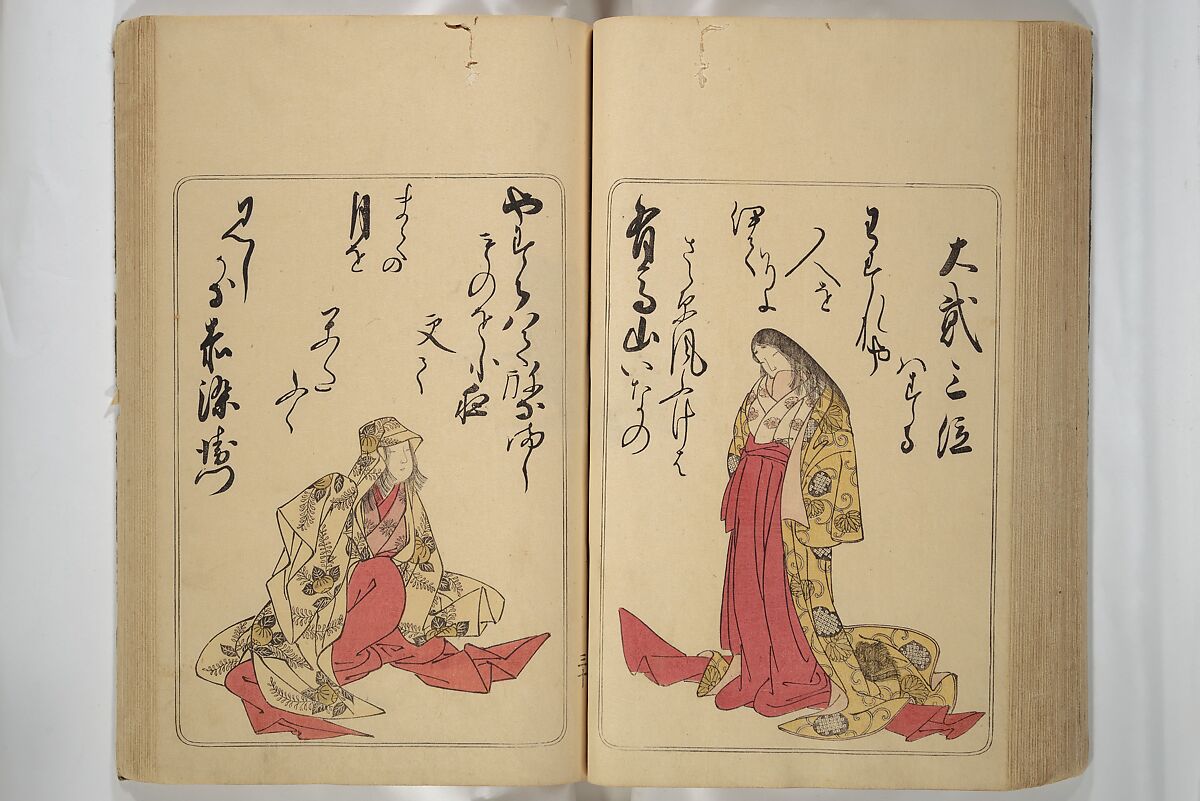 大貳三位
有馬山いなの
さゝ原風ふけは
伊てそよ
人を
わすれや
はする
やすらハて祢なまし
ものを小夜
更て
かた
ふく
まての
月を
見しかな
赤染衛門